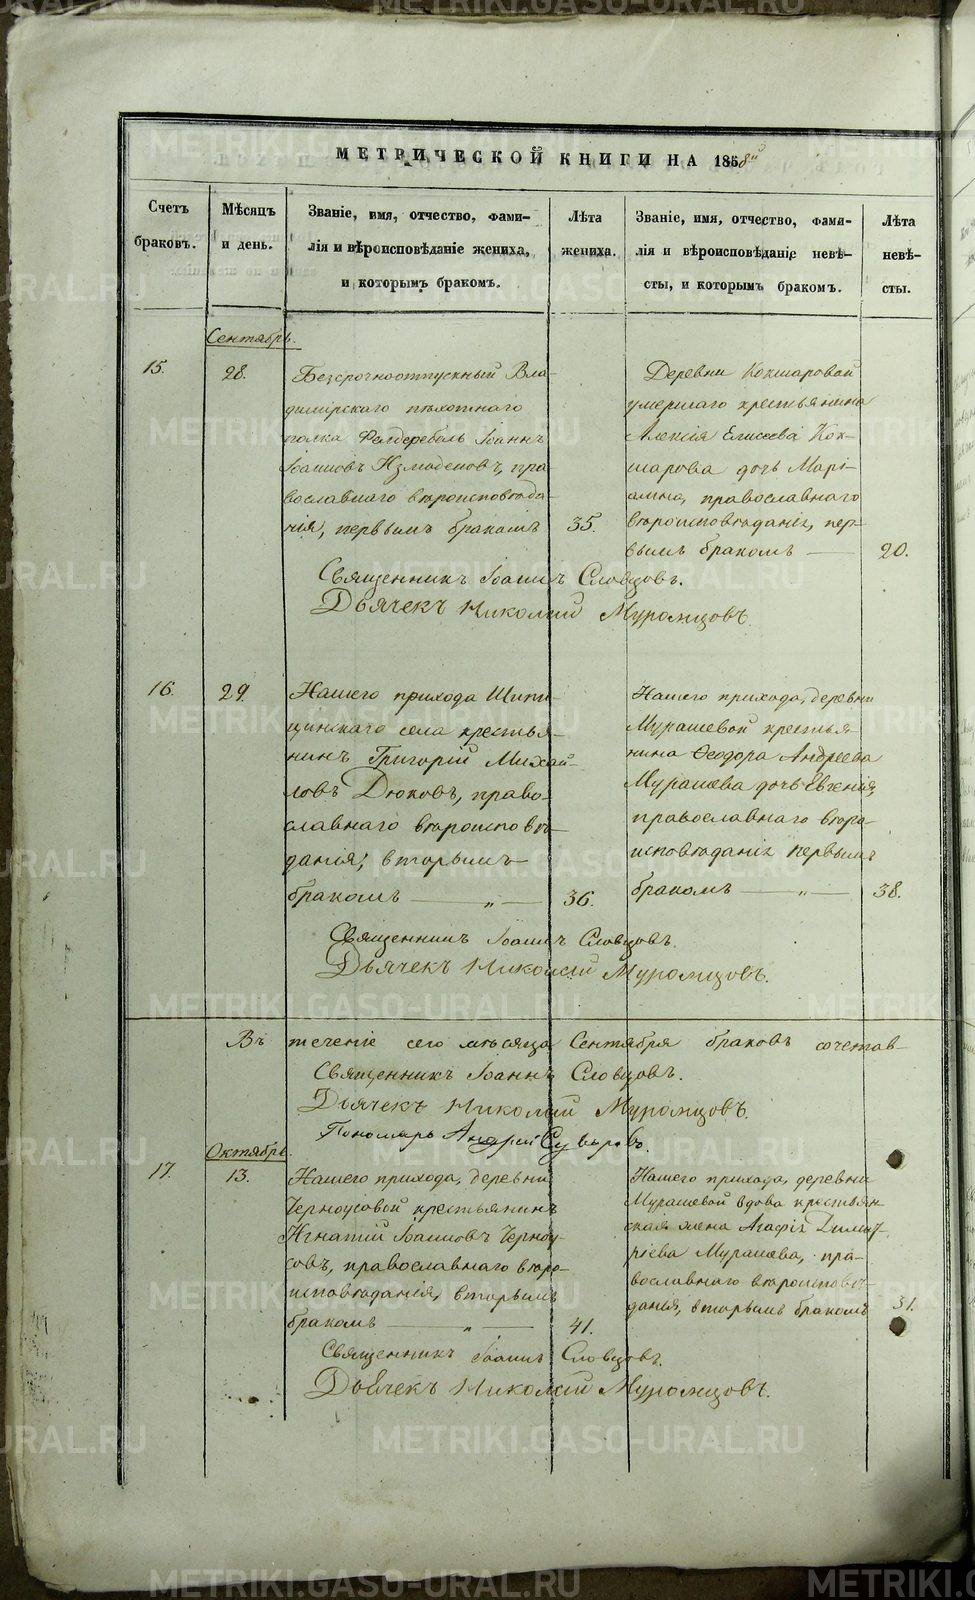 МЕТРИЧЕСКОЙ КНИГИ НА 1858й
Счетъ
браковъ.
Мѣсяцъ
и день.
Званіе, имя, отчество, фами-
лія и вѣроисповѣданіе жениха,
и которымъ бракомъ.
Лѣта
жениха.
Званіе, имя, отчество, фами-
лія и вѣроисповѣданіе невѣ-
сты, и которымъ бракомъ.
Лѣта
невѣ-
сты.
Сентябрь.
15.
28.
Безсрочноотпускный Вла-
димірскаго пѣхотнаго
полка Іоаннъ
Іоанновъ пра
вославнаго вѣроисповѣда-
нія, первымъ бракомъ
35.
Деревни Кокшаровой
умершаго крестьянина
Алексія Елисеева Кок-
шарова дочь Марі-
амна, православнаго
вѣроисповѣданія, пер-
вымъ бракомъ
20.
Священникъ Іоаннъ Словцовъ.
Дьячекъ Николай Муромцовъ.
16.
29.
Нашего прихода Шипи-
цинскаго села крестья-
нинъ Григорій Михай-
ловъ Дюковъ, право-
славнаго вѣроисповѣ-
данія, вторымъ
бракомъ — „ —
36.
Нашего прихода, деревни
Мурашевой крестья-
нина Ѳеодора Андреева
Мурашева дочь Евгенія,
православнаго вѣро-
исповѣданія первымъ
бракомъ — „ —
38.
Священникъ Іоаннъ Словцовъ.
Дьячекъ Николай Муромцовъ.
Въ теченіе сего мѣсяца Сентября браковъ сочетав-
Священникъ Іоаннъ Словцовъ.
Дьячекъ Николай Муромцовъ.
Пономарь Андрей Суворовъ.
Октябрь.
17.
13.
Нашего прихода, деревни
Черноусовой крестьянинъ
Игнатій Іоанновъ Черноу-
совъ, православнаго вѣро-
исповѣданія, вторымъ
бракомъ — „ —
41.
Нашего прихода, деревни
Мурашевой вдова крестьян-
ская жена Агафія Димит-
ріева Мурашева, пра-
вославнаго вѣроисповѣ-
данія, вторымъ бракомъ
31.
Священникъ Іоаннъ Словцовъ.
Дьячекъ Николай Муромцовъ.
METRIKI.GASO-URAL.RU